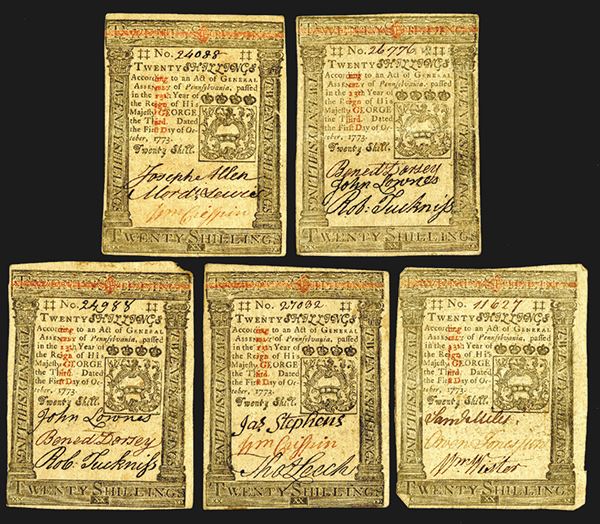 No. 24088
TWENTY SHILLINGS
According to an Act of GENERAL
ASSEMBLY of Pennsylvania, passed
in the 13th Year of
the Reign of His
Majesty GEORGE
the Third. Dated
the First Day of Oc-
tober, 1773.
Twenty Shill.
Joseph Allen
Mord Lewis
Wm Crispin
TWENTY SHILLINGS
XX
No. 26776
TWENTY SHILLINGS
According to an Act of GENERAL
ASSEMBLY of Pennsylvania, passed
in the 13th Year of
the Reign of His
Majesty GEORGE
the Third. Dated
the First Day of Oc-
tober, 1773.
Twenty Shill.
Bened Dorsey
John Lownes
Rob: Tuckniss
TWENTY SHILLINGS
XX
No. 24988
TWENTY SHILLINGS
According to an Act of GENERAL
ASSEMBLY of Pennsylvania, passed
in the 13th Year of
the Reign of His
Majesty GEORGE
the Third. Dated
the First Day of Oc-
tober, 1773.
Twenty Shill.
John Lownes
Bened Dorsey
Rob: Tuckniss
TWENTY SHILLINGS
XX
No. 27032
TWENTY SHILLINGS
According to an Act of GENERAL
ASSEMBLY of Pennsylvania, passed
in the 13th Year of
the Reign of His
Majesty GEORGE
the Third. Dated
the First Day of Oc-
tober, 1773.
Twenty Shill.
Jas Stephens
Wm Crispin
Thos Leech
TWENTY SHILLINGS
XX
No. 11627
TWENTY SHILLINGS
According to an Act of GENERAL
ASSEMBLY of Pennsylvania, passed
in the 13th Year of
the Reign of His
Majesty GEORGE
the Third. Dated
the First Day of Oc-
tober, 1773.
Twenty Shill.
Saml Miles
Owen Jones
Wm Wister
TWENTY SHILLINGS
XX